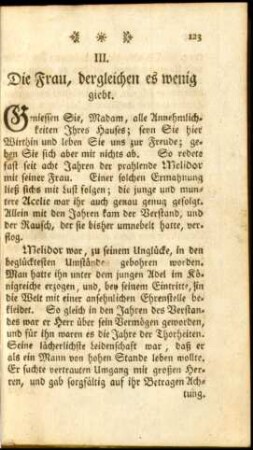 123
III.
Die Frau, dergleichen es wenig
giebt.
Geniessen Sie, Madam, alle Annehmlich-
keiten Ihres Hauses; seyn Sie hier
Wirthin und leben Sie uns zur Freude; ge-
ben Sie sich aber mit nichts ab. So redete
fast seit acht Jahren der prahlende Melidor
mit seiner Frau. Einer solchen Ermahnung
ließ sichs mit Lust folgen; die junge und mun-
tere Acelie war ihr auch genau genug gefolgt.
Allein mit den Jahren kam der Verstand, und
der Rausch, der sie bisher umnebelt hatte, ver-
flog.
Melidor war, zu seinem Unglücke, in den
beglücktesten Umständen gebohren worden.
Man hatte ihn unter dem jungen Adel im Kö-
nigreiche erzogen, und, bey seinem Eintritte, in
die Welt mit einer ansehnlichen Ehrenstelle be-
kleidet. So gleich in den Jahren des Verstan-
des war er Herr über sein Vermögen geworden,
und für ihn waren es die Jahre der Thorheiten.
Seine lächerlichste Leidenschaft war, daß er
als ein Mann von hohen Stande leben wollte.
Er suchte vertrauten Umgang mit großen Her-
ren, und gab sorgfältig auf ihr Betragen Ach-
tung.